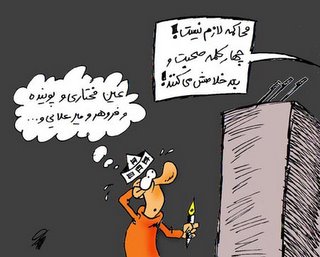 محاکمه لازم نیست!
چهار کلمه صحبت و
بعد خلاصش می کنند!
عین مختاری و پوینده
و فروهر و میرعلایی و...